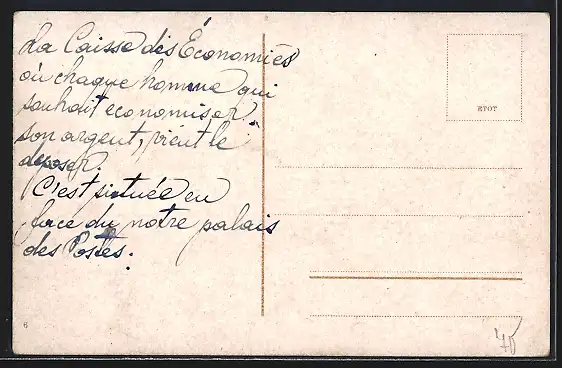 La Caisse des Économies
où chaque homme qui
souhait economiser
son argent, vient le
deposer.
C'est sirtuée en
face du notre palais
des Postes.
ETOT
6